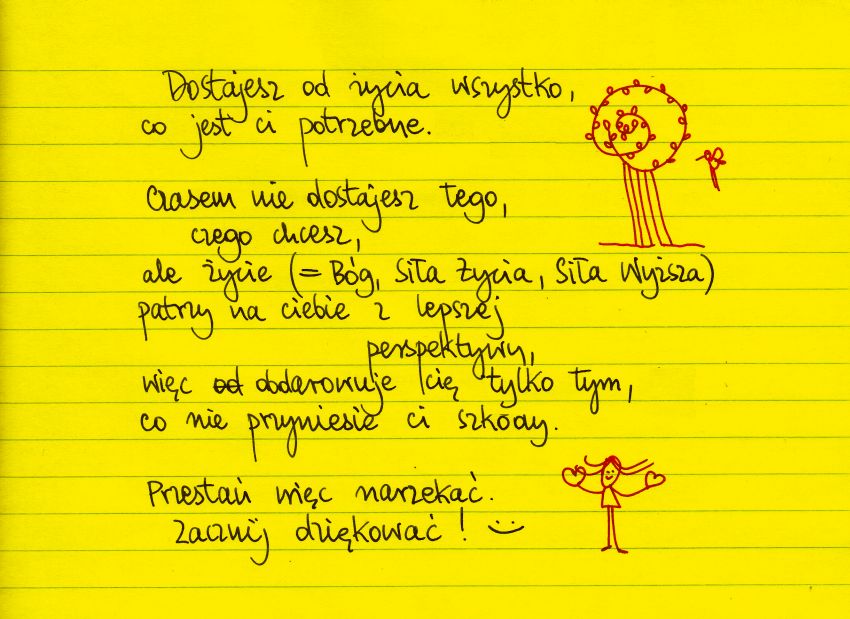 Dostajesz od życia wszystko,
co jest ci potrzebne.
Czasem nie dostajesz tego,
czego chcesz,
ale życie (= Bóg, Siła Życia, Siła Wyższa)
patrzy na ciebie z lepszej
perspektywy,
więc od obdarowuje cię tylko tym,
co nie przyniesie ci szkody.
Przestań więc narzekać.
Zacznij dziękować! :)